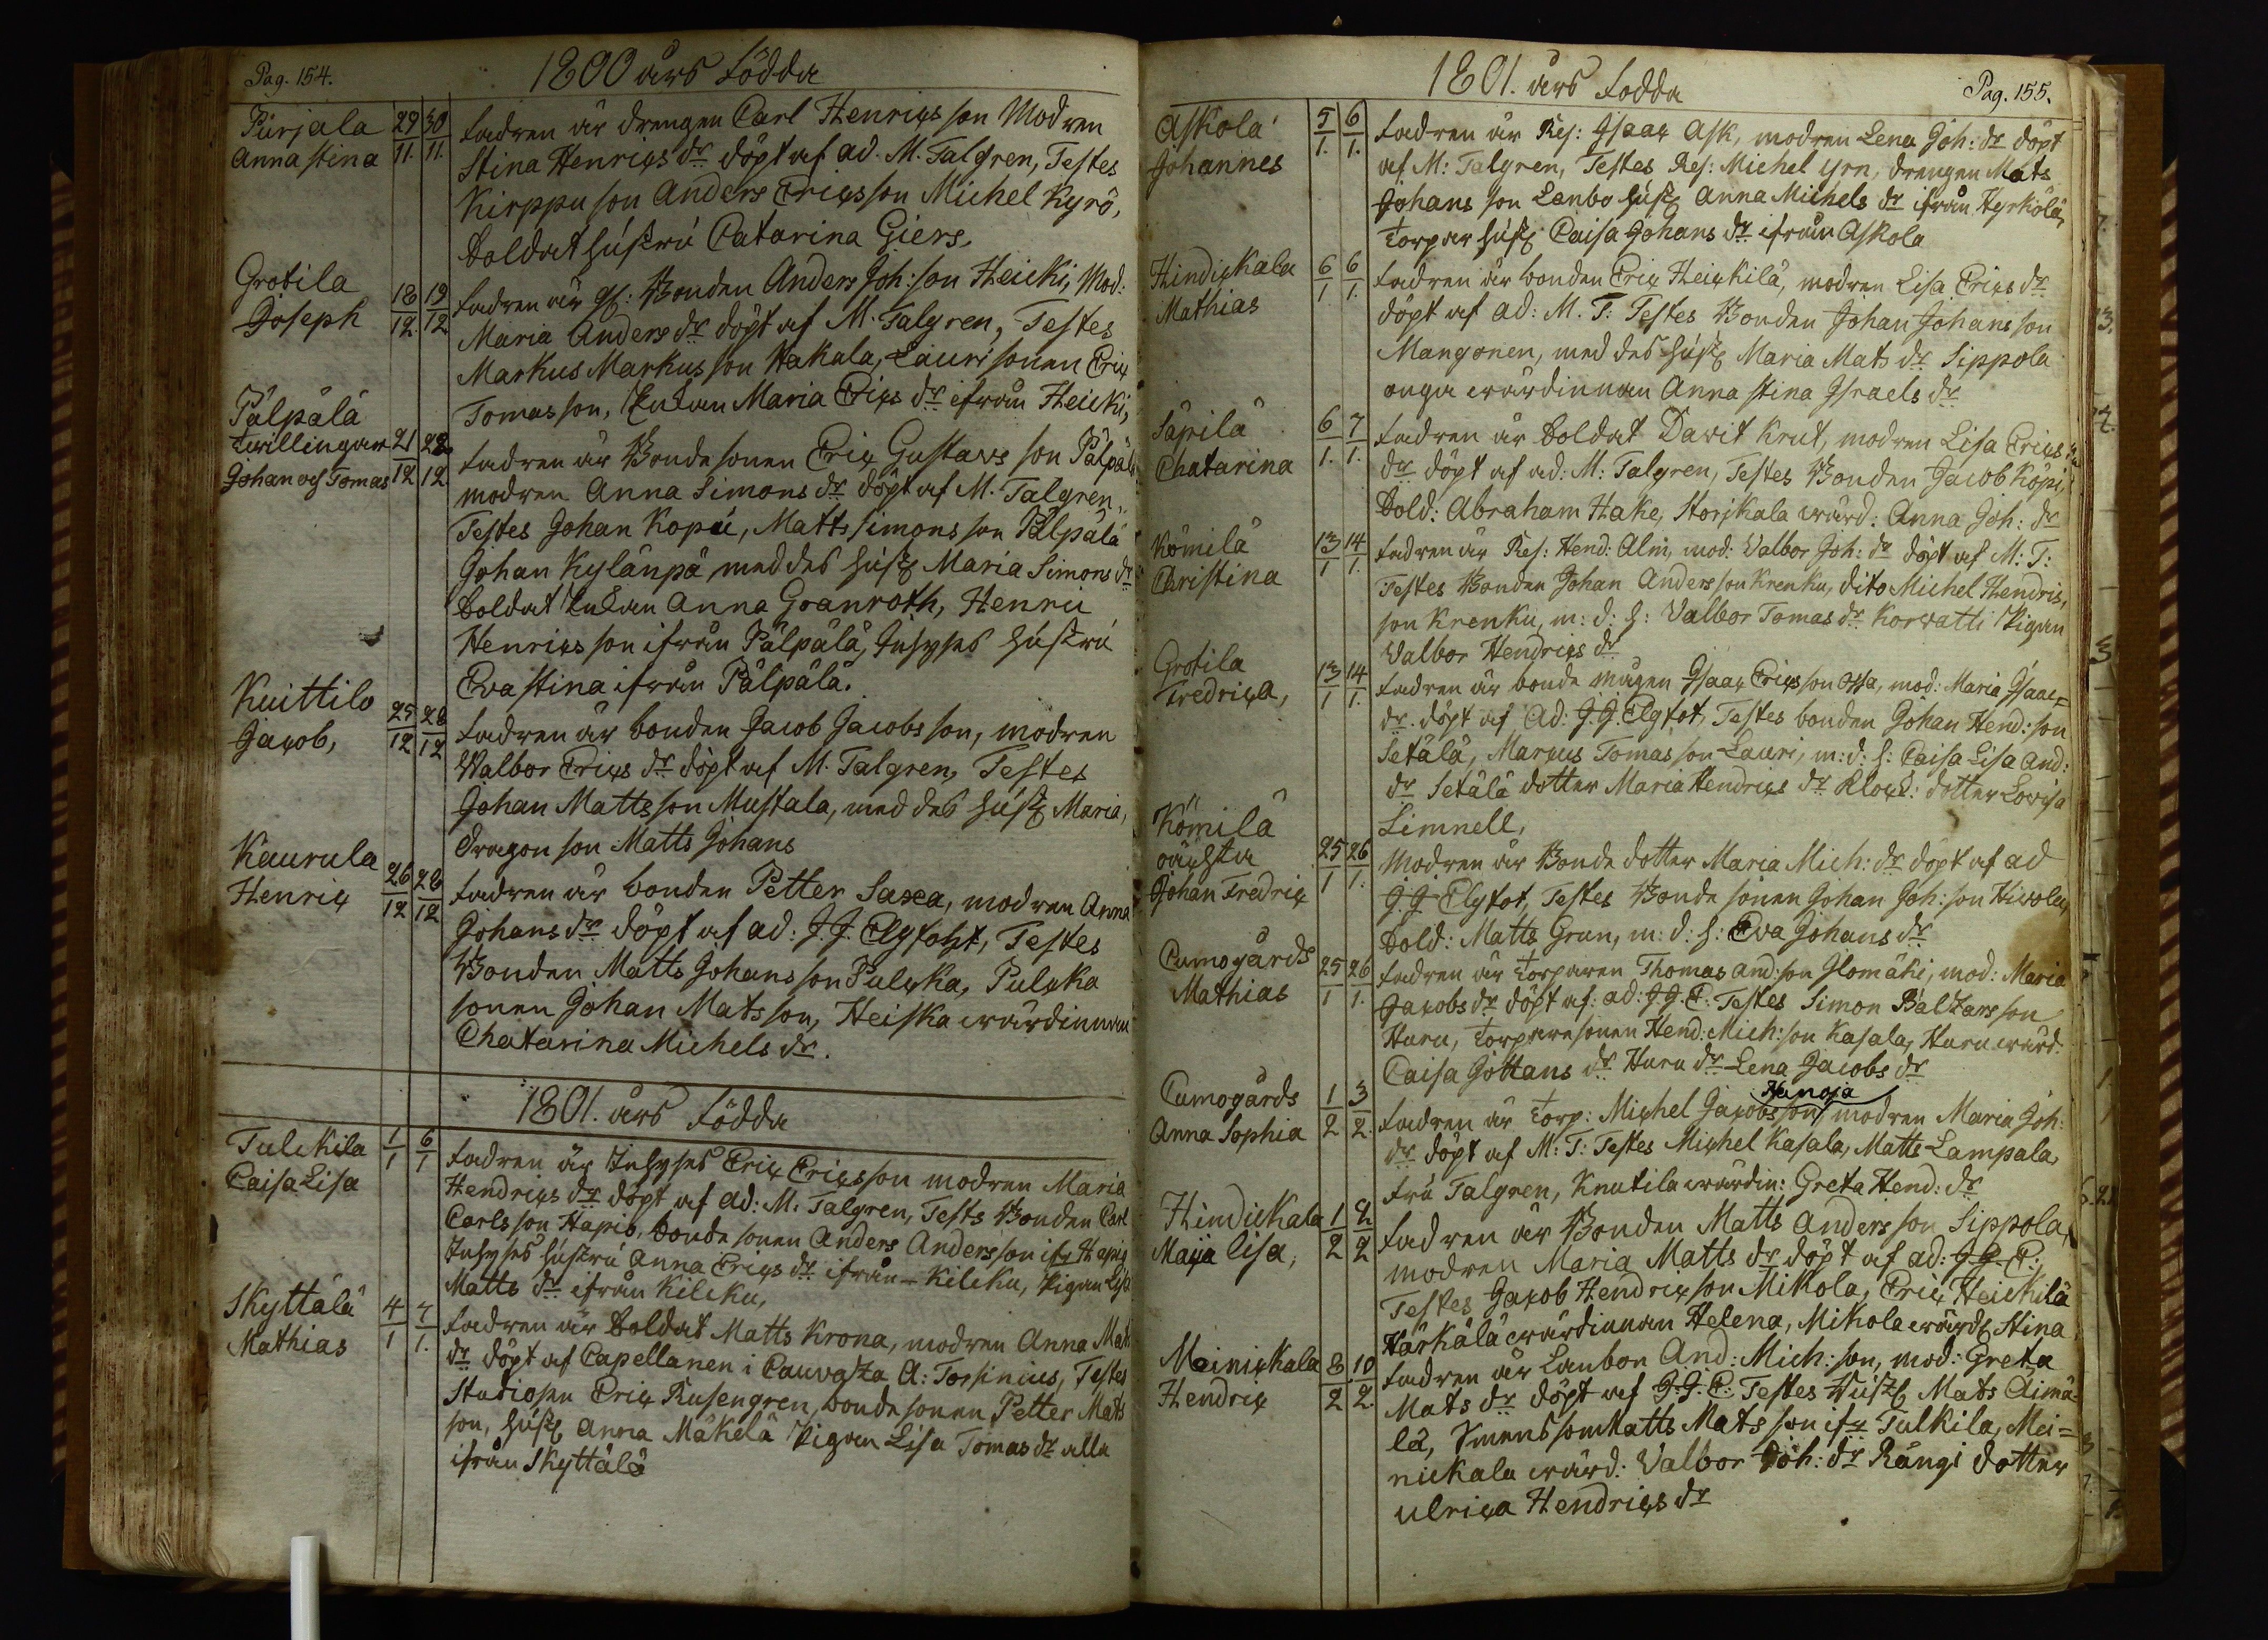 Pag. 154.
1800 års Födda
Purjala 29/11. 30/11.
Anna Stina
Fadren är drengen Carl Henrigs son Modren
Stina Henrigs dr döpt af ad. M. Talgren, Testes
Kirppu son Anders Erigsson Michel Kyrö,
Soldat hustru Catarina Giers,
Grotila
Joseph 18/12. 19/12
Fadren är gf: Bonden Anders Joh: son Heicki, Mod:
Maria Anders dr döpt af M. Talgren, Testes
Markus Markus son Hakala, Lauri sonen Erig
Tomas son, Enkan Maria Erigs dr ifrån Heicki,
Pälpälä
Twillingar 21/12 22/12
Johan och Tomas
Fadren är Bonde sonen Erig Gustavs son Pälpälä
modren Anna Simons dr döpt af M. Talgren,
Testes Johan Kopu, Matts Simons son Pälpälä
Johan Kylänpä med des hust Maria Simons dr
Soldat Enkan Anna Granroth, Henric
Henrigs son ifrån Pälpälä, Inhyses hustru
Eva Stina ifrån Pälpälä.
Kuittilo
Jacob, 25/12 28/12
Fadren är bonden Jacob Jacobs son, modren
Walbor Erigs dr döpt af M. Talgren, Testes
Johan Matts son Mustala, med des hust Maria,
dragon son Matts Johans
Kaurula
Henrig 26/12 28/12
Fadren är bonden Petter Saxa, modren Anna
Johans dr döpt af ad: J. J. Elgfoht, Testes
Bonden Matts Johans son Pulcka, Pulcka
sonen Johan Mats son, Heiska wärdinnan
Chatarina Michels dr.
1801. års Födda
Tulckila 1/1 6/1
Caisa Lisa
Fadren är Inhyses Erig Erigsson modren Maria
Hendrigs dr döpt af ad: M. Talgren, Tests Bonden Carl
Carlsson Hapio, bonde sonen Anders Andersson ifr Hapio
Inhyses hustru Anna Erigs dr ifrån Kilcku, Pigan Lisa
Matts dr ifrån Kilcku,
Skyttälä 4/1 7/1.
Mathias
Fadren är Soldat Matts Krona, modren Anna Mats
dr döpt af Capellanen i Cauvaza A: Forsinius, Testes
Studiosen Erig Rusengren, bonde sonen Petter Mats
son, hust Anna Mäkelä Pigan Lisa Tomas dr alla
ifrån Skyttälä
1801. års Fodda
Pag. 155.
Askola 5/1. 6/1.
Johannes
Fadren är Res: Isaac Ask, modren Lena Joh: dr döpt
af M: Talgren, Testes Res: Michel Yrn, drengen Mats
Johans son Lenbo hust Anna Michels dr ifrån Hyrkölä,
Torpar hust Caisa Johans dr ifrån Askola
Hindickala 6/1 6/1.
Mathias
Fadren är bonden Erig Heickilä, modren Lisa Erigs dr
döpt af ad: M. T: Testes Bonden Johan Johans son
Mangonen, med des hust Maria Mats dr Sippola
unga wärdinnan Anna Stina Israels dr
Säpilä 6/1. 7/1.
Chatarina
Fadren är Soldat Davit Krut, modren Lisa Erigs
dr döpt af ad: M: Talgren, Testes Bonden Jacob Köpi,
Sold: Abraham Hake, Storjkala wärd: Anna Joh: dr
Kömilä 13/1 14/1.
Christina
Fadren är Res: Hend: Alm, mod: Valbor Joh: dr döpt af M: T:
Testes Bonden Johan Anders son Krenku, dito Michel Hendris,
son Krenku, m: d: h: Valbor Tomas dr Korvatti Pigan
Valbor Hendrigs dr
Grotila 13/1 14/1.
Fredriga,
Fadren är bonde mågen Isaac Erigs son Ossa, mod: Maria Isaac=
dr döpt af Ad: J. J. Elgfot, Testes bonden Johan Hend: son
Setälä, Marcus Tomas son Lauri, m: d: h: Caisa Lisa And:
dr Setälä dotter Maria Hendrigs dr Klock: dotter Lovisa
Limnell,
Kömilä
oächta 25/1 26/1.
Johan Fredrig
Modren är Bonde dotter Maria Mich: dr döpt af ad
J. J. Elgfot, Testes Bonde sonen Johan Joh: son Hiwola,
Sold: Matts Gran, m: d: h: Eva Johans dr
Cumogårds 25/1 26/1.
Mathias
Fadren är Torparen Thomas And: son Ilomäki, mod: Maria
Jacobs dr döpt af: ad: J. J. E. Testes Simon Balzars son
Huru, Torpare sonen Hend: Mich: son Kasala, Huru wärd:
Caisa Göttans dr Huru dr Lena Jacobs dr
Cumogårds 1/2 3/2.
Anna Sophia
Hanoja
Fadren är Torp: Michel Jacobsson modren Maria Joh:
dr döpt af M: T: Testes Michel Kasala, Matts Lampala,
Fru Talgren, Knutila wärdin: Greta Hend: dr
Hindickala 1/2 2/2
Maija Lisa,
Fadren är Bonden Matts Anders son Sippola,
modren Maria Matts dr döpt af ad: J. J. E.,
Testes Jacob Hendrig son Mikola, Erig Heickilä
Härkälä wärdinnan Helena, Mikola wärd Stina
Meinickala 8/2 10/2.
Hendrig
Fadren är Lanbon And: Mich: son, mod: Greta
Mats dr döpt af J. J. E: Testes Hust Mats Aimä-
lä, Smens som Matts Mats son ifr Tulkila, Mei=
nickala wärd: Valbor Joh: dr Rängi dotter
Ulriga Hendrigs dr